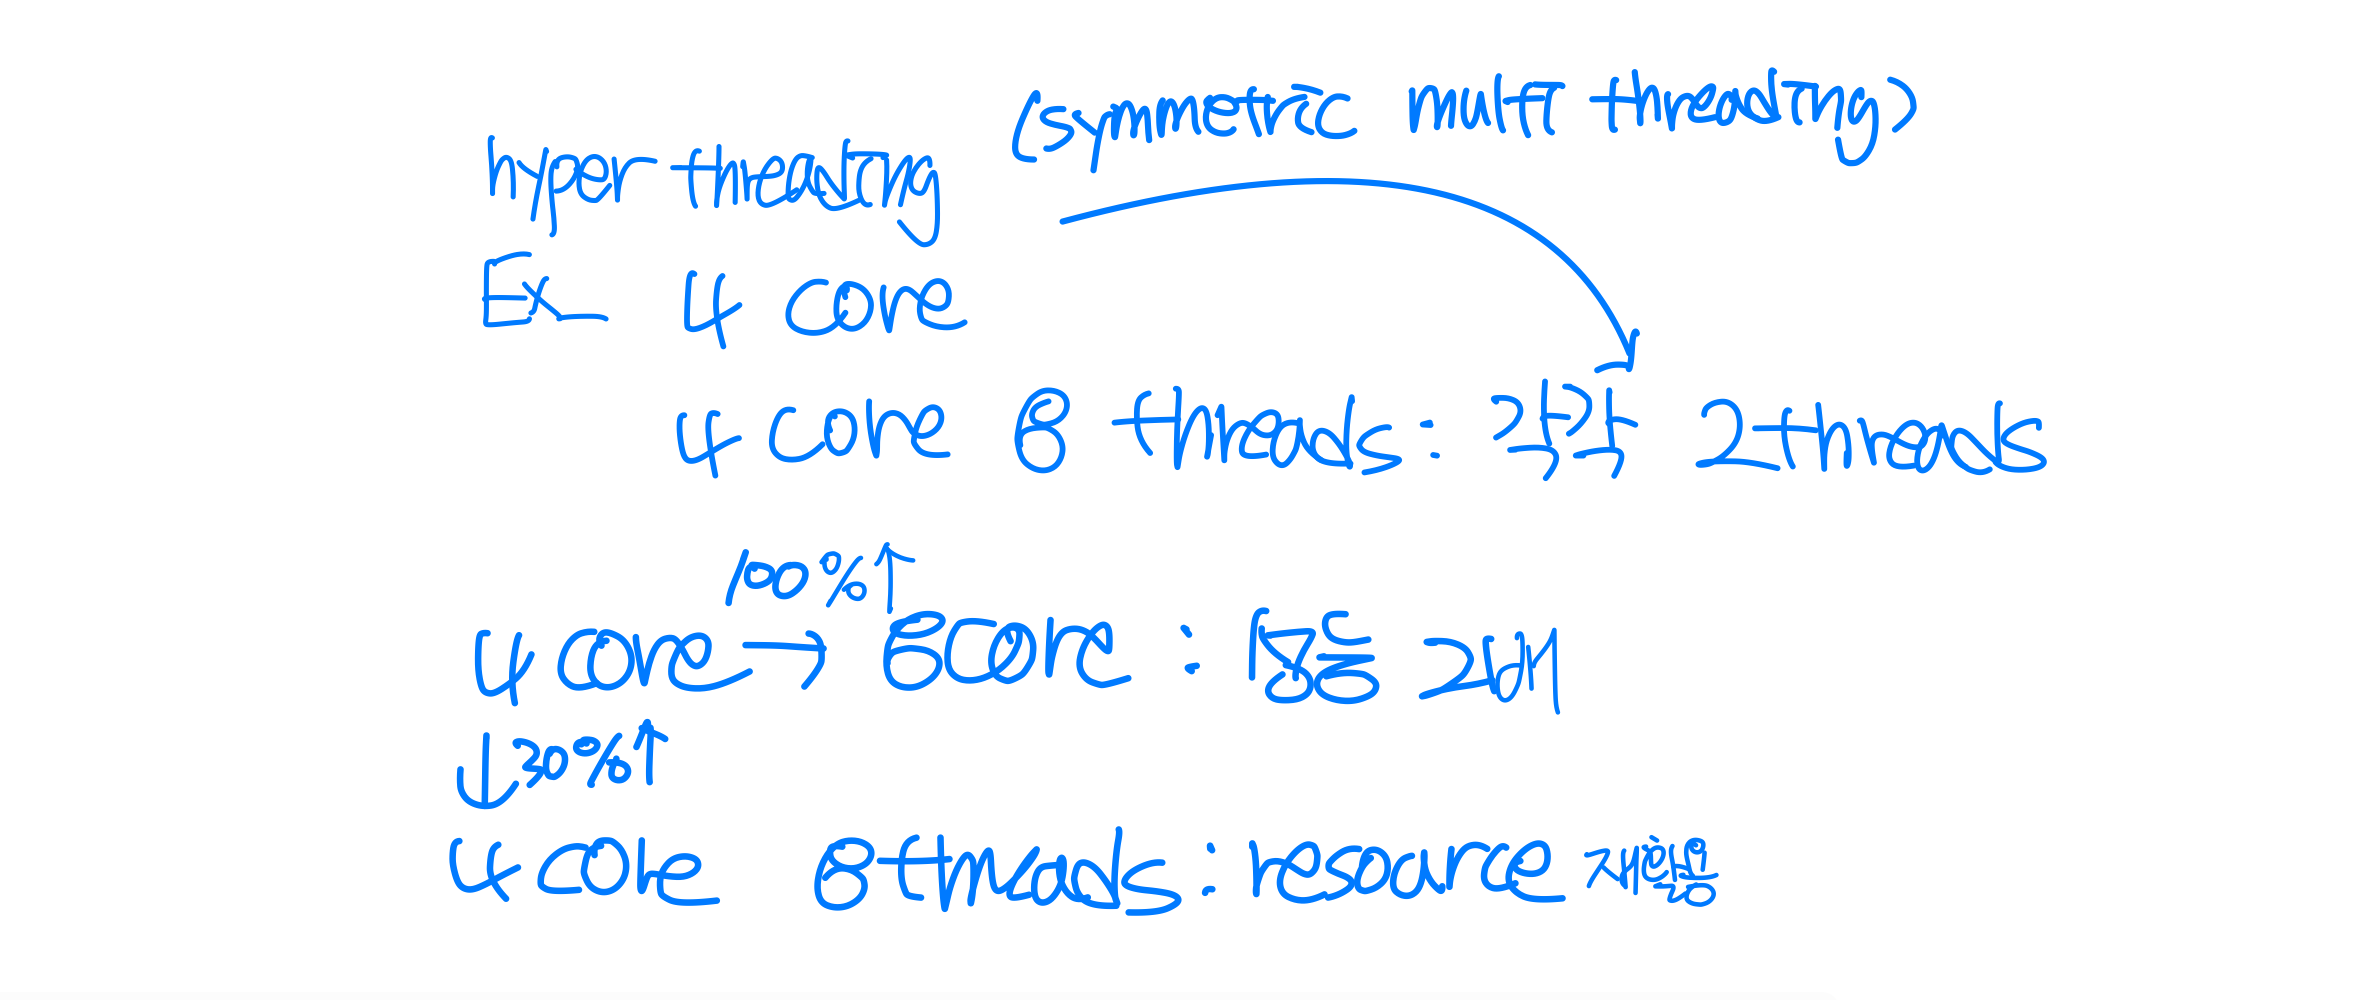 (symmetric multi threading)
hyper threading
Ex 4 core
4 core 8 threads: 각각 2 threads
100%↑
4 core → 8 core : 성능 2배
↓ 30%↑
4 core 8 threads : resource 재활용